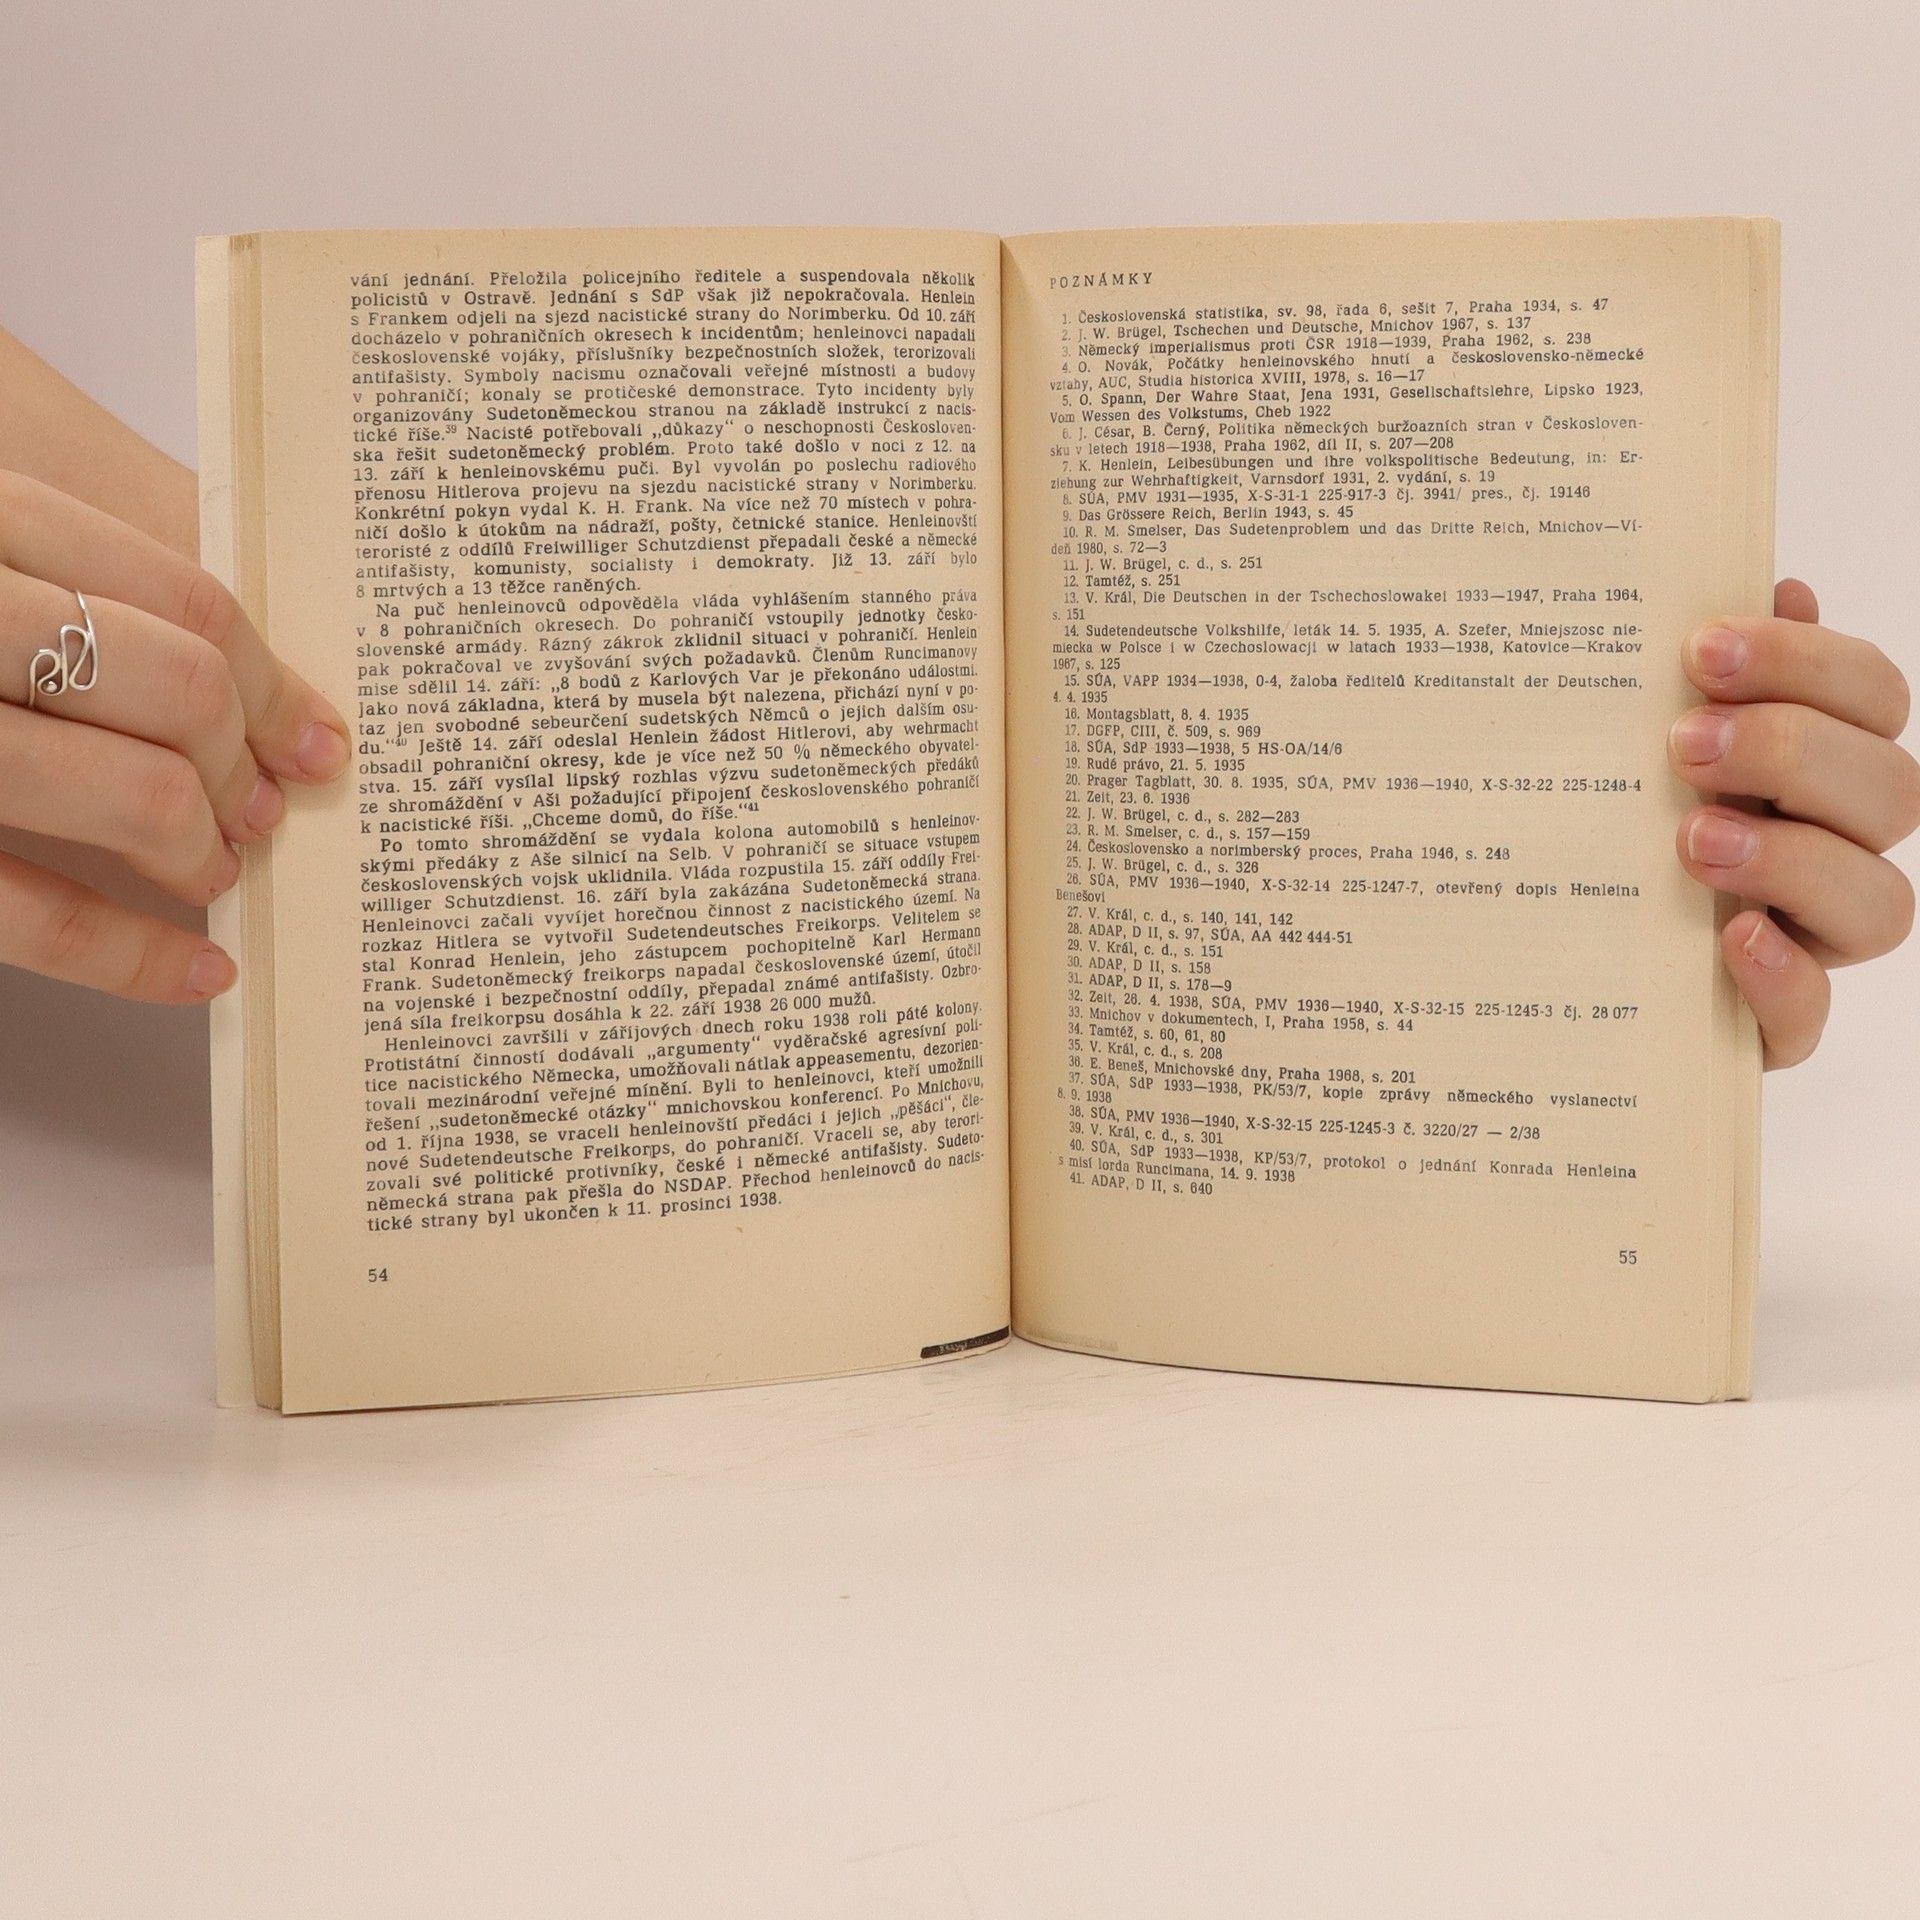 vání jednání. Přeložila policejního ředitele a suspendovala několik
policistů v Ostravě. Jednání s SdP však již nepokračovala. Henlein
s Frankem odjeli na sjezd nacistické strany do Norimberku. Od 10. září
docházelo v pohraničních okresech k incidentům; henleinovci napadali
československé vojáky, příslušníky bezpečnostních složek, terorizovali
antifašisty. Symboly nacismu označovali veřejné místnosti a budovy
v pohraničí; konaly se protičeské demonstrace. Tyto incidenty byly
organizovány Sudetoněmeckou stranou na základě instrukcí z nacis-
tické říše.39 Nacisté potřebovali „důkazy“ o neschopnosti Českosloven-
ska řešit sudetoněmecký problém. Proto také došlo v noci z 12. na
13. září k henleinovskému puči. Byl vyvolán po poslechu radiového
přenosu Hitlerova projevu na sjezdu nacistické strany v Norimberku.
Konkrétní pokyn vydal K. H. Frank. Na více než 70 místech v pohra-
ničí došlo k útokům na nádraží, pošty, četnické stanice. Henleinovští
teroristé z oddílů Freiwilliger Schutzdienst přepadali české a německé
antifašisty, komunisty, socialisty i demokraty. Již 13. září bylo
8 mrtvých a 13 těžce raněných.
Na puč henleinovců odpověděla vláda vyhlášením stanného práva
v 8 pohraničních okresech. Do pohraničí vstoupily jednotky česko-
slovenské armády. Rázný zákrok zklidnil situaci v pohraničí. Henlein
pak pokračoval ve zvyšování svých požadavků. Členům Runcimanovy
mise sdělil 14. září: „8 bodů z Karlových Var je překonáno událostmi.
Jako nová základna, která by musela být nalezena, přichází nyní v po-
taz jen svobodné sebeurčení sudetských Němců o jejich dalším osu-
du.“40 Ještě 14. září odeslal Henlein žádost Hitlerovi, aby wehrmacht
obsadil pohraniční okresy, kde je více než 50 % německého obyvatel-
stva. 15. září vysílal lipský rozhlas výzvu sudetoněmeckých předáků
ze shromáždění v Aši požadující připojení československého pohraničí
k nacistické říši. „Chceme domů, do říše.“41
Po tomto shromáždění se vydala kolona automobilů s henleinov-
skými předáky z Aše silnicí na Selb. V pohraničí se situace vstupem
československých vojsk uklidnila. Vláda rozpustila 15. září oddíly Frei-
williger Schutzdienst. 16. září byla zakázána Sudetoněmecká strana.
Henleinovci začali vyvíjet horečnou činnost z nacistického území. Na
rozkaz Hitlera se vytvořil Sudetendeutsches Freikorps. Velitelem se
stal Konrad Henlein, jeho zástupcem pochopitelně Karl Hermann
Frank. Sudetoněmecký freikorps napadal československé území, útočil
na vojenské i bezpečnostní oddíly, přepadal známé antifašisty. Ozbro-
jená síla freikorpsu dosáhla k 22. září 1938 26 000 mužů.
Henleinovci završili v záříjových dnech roku 1938 roli páté kolony.
Protistátní činností dodávali „argumenty“ vyděračské agresívní poli-
tice nacistického Německa, umožňovali nátlak appeasementu, dezorien-
tovali mezinárodní veřejné mínění. Byli to henleinovci, kteří umožnili
řešení „sudetoněmecké otázky“ mnichovskou konferencí. Po Mnichovu,
od 1. října 1938, se vraceli henleinovští předáci i jejich „pěšáci“, čle-
nové Sudetendeutsche Freikorps, do pohraničí. Vraceli se, aby terori-
zovali své politické protivníky, české i německé antifašisty. Sudeto-
německá strana pak přešla do NSDAP. Přechod henleinovců do nacis-
tické strany byl ukončen k 11. prosinci 1938.
54
POZNÁMKY
1. Československá statistika, sv. 98, řada 6, sešit 7, Praha 1934, s. 47
2. J. W. Brügel, Tschechen und Deutsche, Mnichov 1967, s. 137
3. Německý imperialismus proti ČSR 1918—1939, Praha 1962, s. 238
4. O. Novák, Počátky henleinovského hnutí a československo-německé
vztahy, AUC, Studia historica XVIII, 1978, s. 16—17
5. O. Spann, Der Wahre Staat, Jena 1931, Gesellschaftslehre, Lipsko 1923,
Vom Wessen des Volkstums, Cheb 1922
6. J. César, B. Černý, Politika německých buržoazních stran v Českosloven-
sku v letech 1918—1938, Praha 1962, díl II, s. 207—208
7. K. Henlein, Leibesübungen und ihre volkspolitische Bedeutung, in: Er-
ziehung zur Wehrhaftigkeit, Varnsdorf 1931, 2. vydání, s. 19
8. SÚA, PMV 1931—1935, X-S-31-1 225-917-3 čj. 3941/ pres., čj. 19146
9. Das Grössere Reich, Berlin 1943, s. 45
10. R. M. Smelser, Das Sudetenproblem und das Dritte Reich, Mnichov—Ví-
deň 1980, s. 72—3
11. J. W. Brügel, c. d., s. 251
12. Tamtéž, s. 251
13. V. Král, Die Deutschen in der Tschechoslowakei 1933—1947, Praha 1964,
s. 151
14. Sudetendeutsche Volkshilfe, leták 14. 5. 1935, A. Szefer, Mniejszosc nie-
miecka w Polsce i w Czechoslowacji w latach 1933—1938, Katovice—Krakov
1967, s. 125
15. SÚA, VAPP 1934—1938, 0-4, žaloba ředitelů Kreditanstalt der Deutschen,
4. 4. 1935
16. Montagsblatt, 8. 4. 1935
17. DGFP, CIII, č. 509, s. 969
18. SÚA, SdP 1933—1938, 5 HS-OA/14/6
19. Rudé právo, 21. 5. 1935
20. Prager Tagblatt, 30. 8. 1935, SÚA, PMV 1936—1940, X-S-32-22 225-1248-4
21. Zeit, 23. 6. 1936
22. J. W. Brügel, c. d., s. 282—283
23. R. M. Smelser, c. d., s. 157—159
24. Československo a norimberský proces, Praha 1946, s. 248
25. J. W. Brügel, c. d., s. 326
26. SÚA, PMV 1936—1940, X-S-32-14 225-1247-7, otevřený dopis Henleina
Benešovi
27. V. Král, c. d., s. 140, 141, 142
28. ADAP, D II, s. 97, SÚA, AA 442 444-51
29. V. Král, c. d., s. 151
30. ADAP, D II, s. 158
31. ADAP, D II, s. 178—9
32. Zeit, 26. 4. 1938, SÚA, PMV 1936—1940, X-S-32-15 225-1245-3 čj. 28 077
33. Mnichov v dokumentech, I, Praha 1958, s. 44
34. Tamtéž, s. 60, 61, 80
35. V. Král, c. d., s. 208
36. E. Beneš, Mnichovské dny, Praha 1968, s. 201
37. SÚA, SdP 1933—1938, PK/53/7, kopie zprávy německého vyslanectví
8. 9. 1938
38. SÚA, PMV 1936—1940, X-S-32-15 225-1245-3 č. 3220/27 — 2/38
39. V. Král, c. d., s. 301
40. SÚA, SdP 1933—1938, KP/53/7, protokol o jednání Konrada Henleina
s misí lorda Runcimana, 14. 9. 1938
41. ADAP, D II, s. 640
55